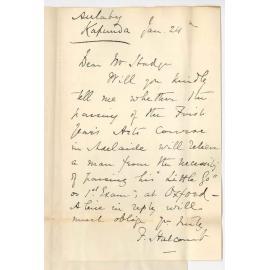 Anlaby
Kapunda Jan. 24th
Dear Mr Hodge
Will you kindly
tell me whether the
passing of the First
Year's Arts Course
in Adelaide will relieve
a man from the necessity
of passing his "Little Go"
or 1st Exam; at Oxford—
A line in reply will
much oblige yrs truly
F. Halcomb